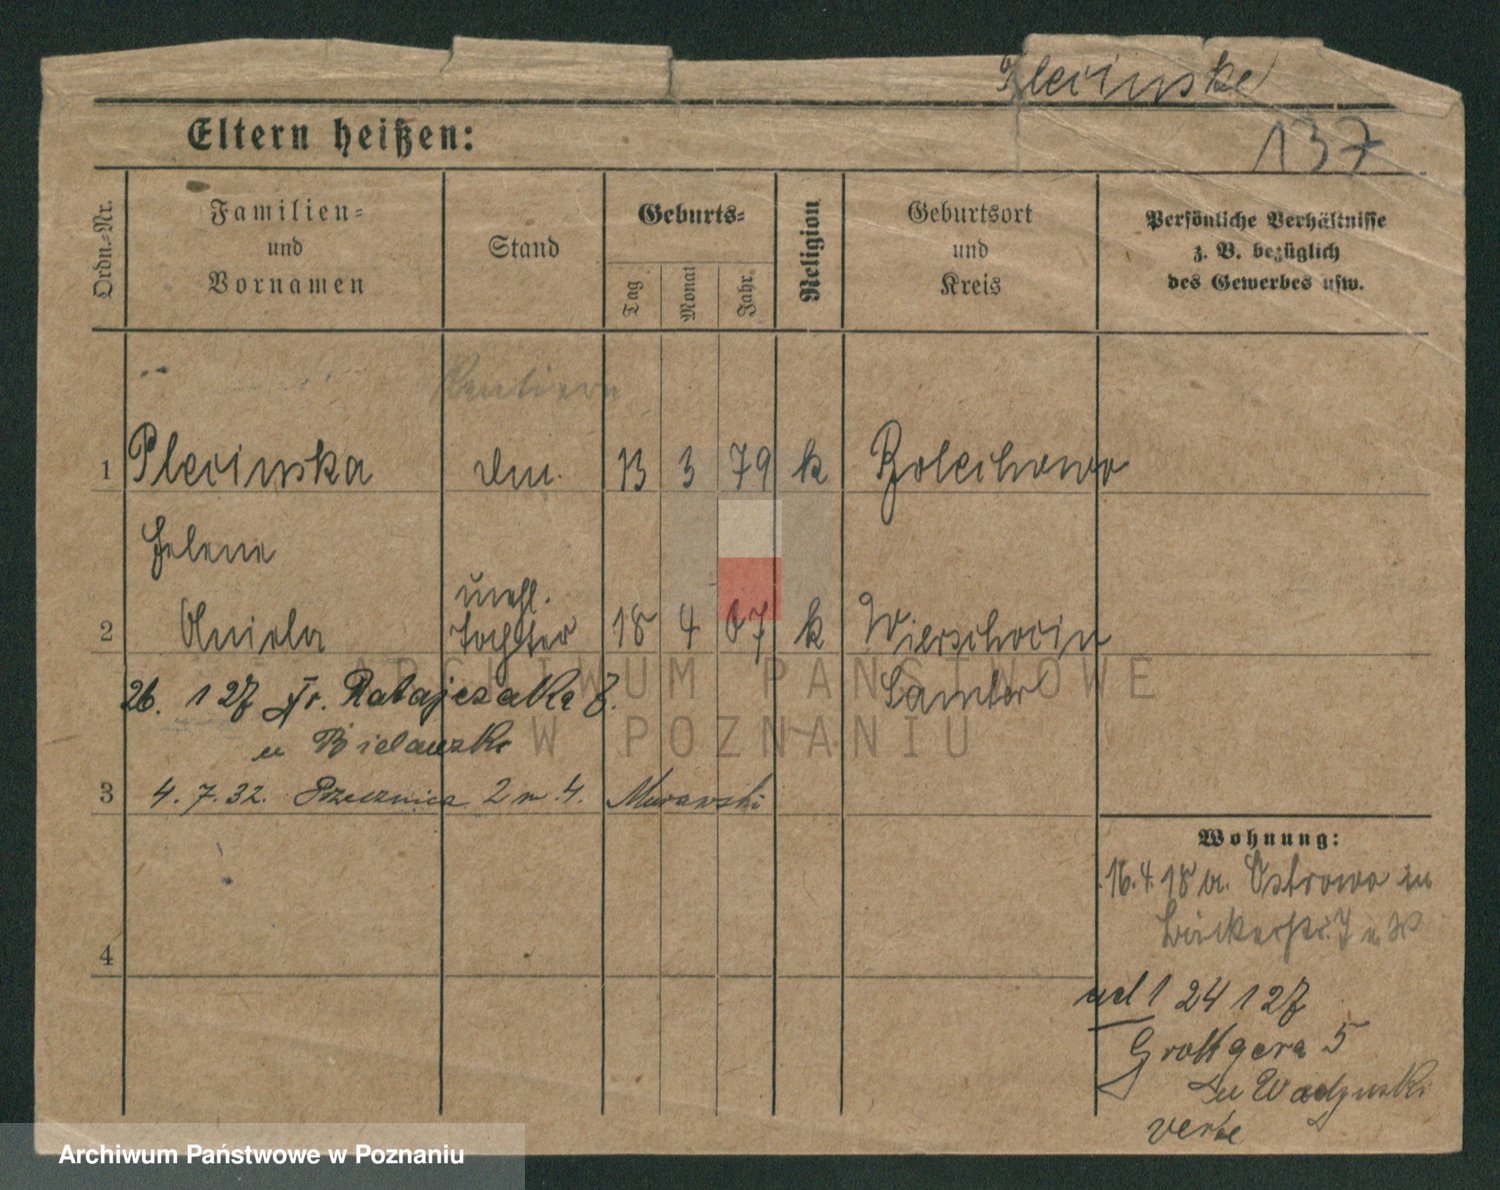 Plecinske
137
Eltern heißen:
Ordn.-Nr.
Familien-
und
Vornamen
Stand
Geburts-
Tag
Monat
Jahr.
Religion
Geburtsort
und
Kreis
Persönliche Verhältnisse
z. B. bezüglich
des Gewerbes usw.
1 Plecinska 13 3 79 k Bolechowo
Helene
unehl.
2 Aniela Tochter 18 4 07 k Wierschocin
Samter
ARCHIWUM PAŃSTWOWE
W POZNANIU
26. 1 27 Fr. Ratajczaka 7.
u Bielawski
3 4. 7. 32. Strzecznica 2 m. 4. Murawski
4
Wohnung:
16. 4. 18 a. Ostrowo in
Bäckerstr. 7
ad 1 24 1 27
Grottgera 5
zu Wadzynski
verte
Archiwum Państwowe w Poznaniu